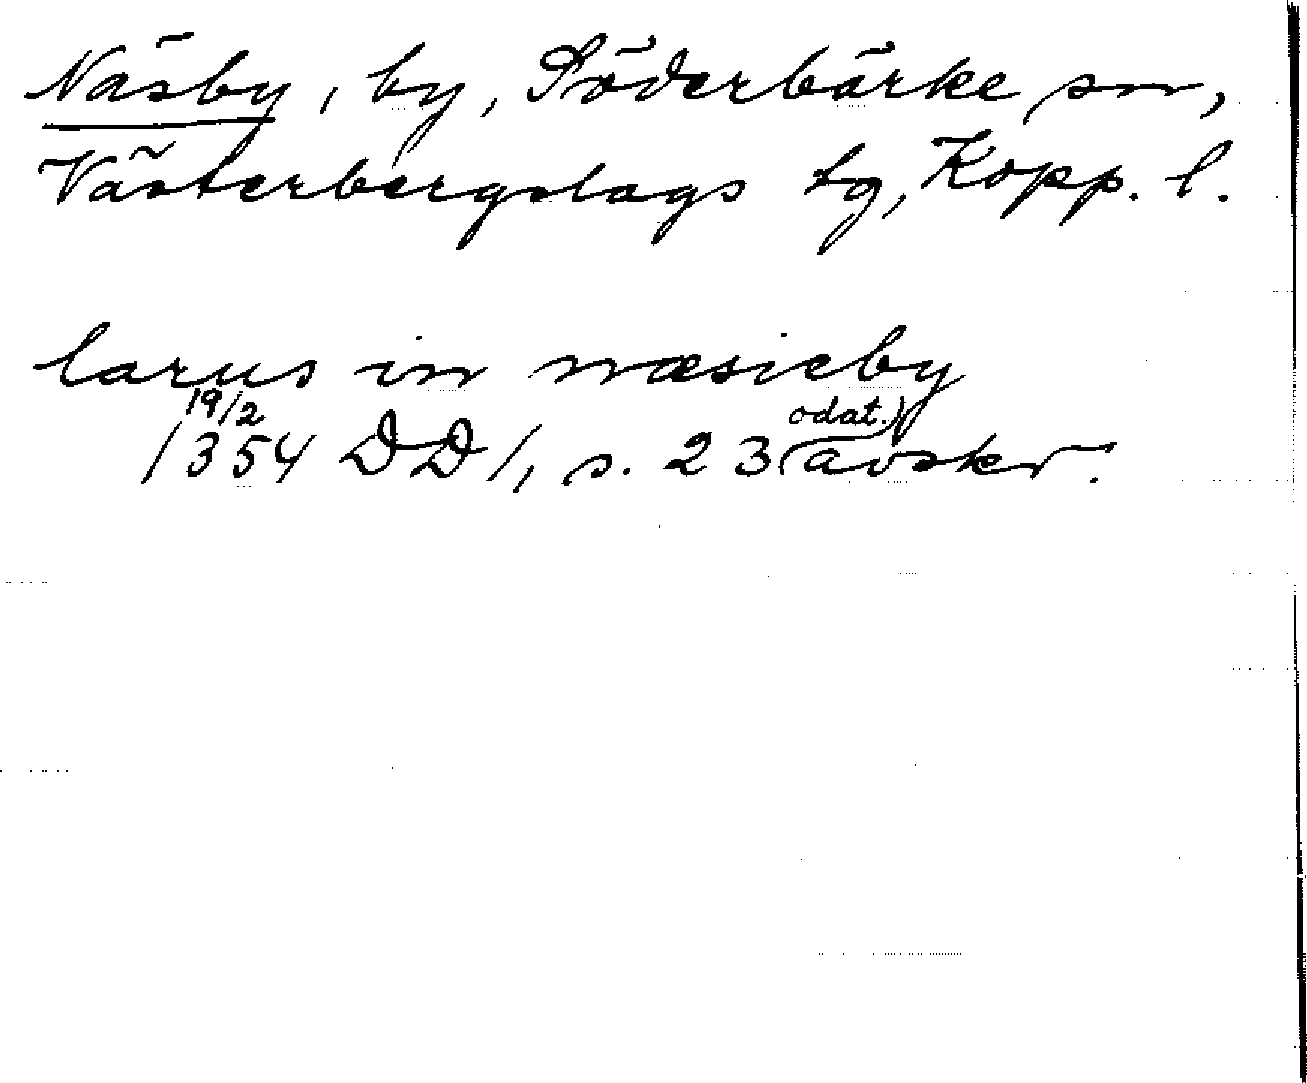 Näsby, by, Söderbärke sn,
Västerbergslags tg, Kopp. l.
larus in næsieby
19/2
1354 DD 1, s. 23 (odat.) avskr.